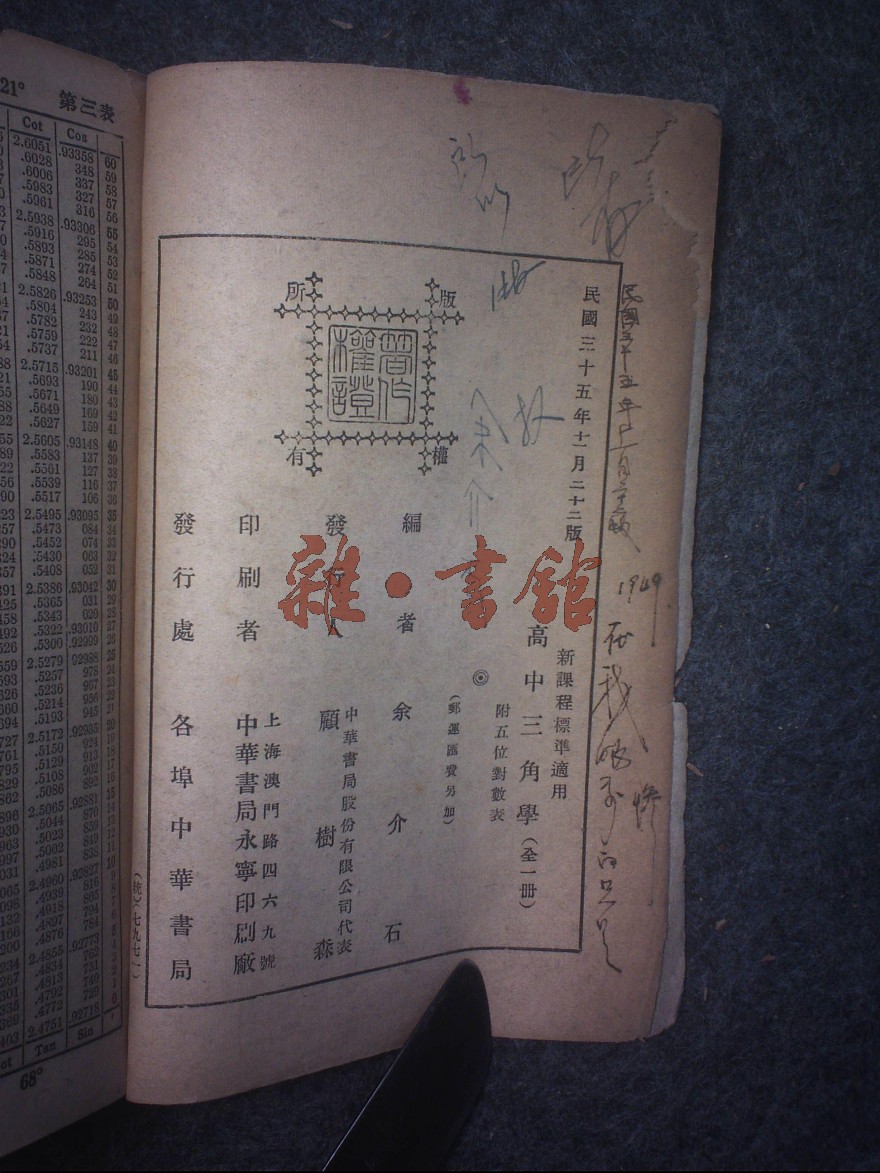 民國三十五年十一月二十二版
新課程標準適用
高中三角學（全一册）
附五位對數表
◎
（郵運匯費另加）
編者 余介石
發行人 中華書局股份有限公司代表
顧樹森
印刷者 上海澳門路四六九號
中華書局永寧印刷廠
發行處 各埠中華書局
（統）七九七一
版權所有
著作權證
雜·書館
民國三十五年十一月二十二版
1949
21° 第三表
Cot Cos
2.6051 .93358 60
.6028 348 59
.6006 337 58
.5983 327 57
.5961 316 56
2.5938 .93306 55
.5916 295 54
.5893 285 53
.5871 274 52
.5848 264 51
2.5826 .93253 50
.5804 243 49
.5782 232 48
.5759 222 47
.5737 211 46
2.5715 .93201 45
.5693 190 44
.5671 180 43
.5649 169 42
.5627 159 41
2.5605 .93148 40
.5583 137 39
.5561 127 38
.5539 116 37
.5517 106 36
2.5495 .93095 35
.5473 084 34
.5452 074 33
.5430 063 32
.5408 052 31
2.5386 .93042 30
.5365 031 29
.5343 020 28
.5322 .93010 27
.5300 .92999 26
2.5279 .92988 25
.5257 978 24
.5236 967 23
.5214 956 22
.5193 945 21
2.5172 .92935 20
.5150 924 19
.5129 913 18
.5108 902 17
.5086 892 16
2.5065 .92881 15
.5044 870 14
.5023 859 13
.5002 849 12
.4981 838 11
2.4960 .92827 10
.4939 816 9
.4918 805 8
.4897 794 7
.4876 784 6
2.4855 .92773 5
.4834 762 4
.4813 751 3
.4792 740 2
.4772 729 1
2.4751 .92718 0
Tan Sin
68°